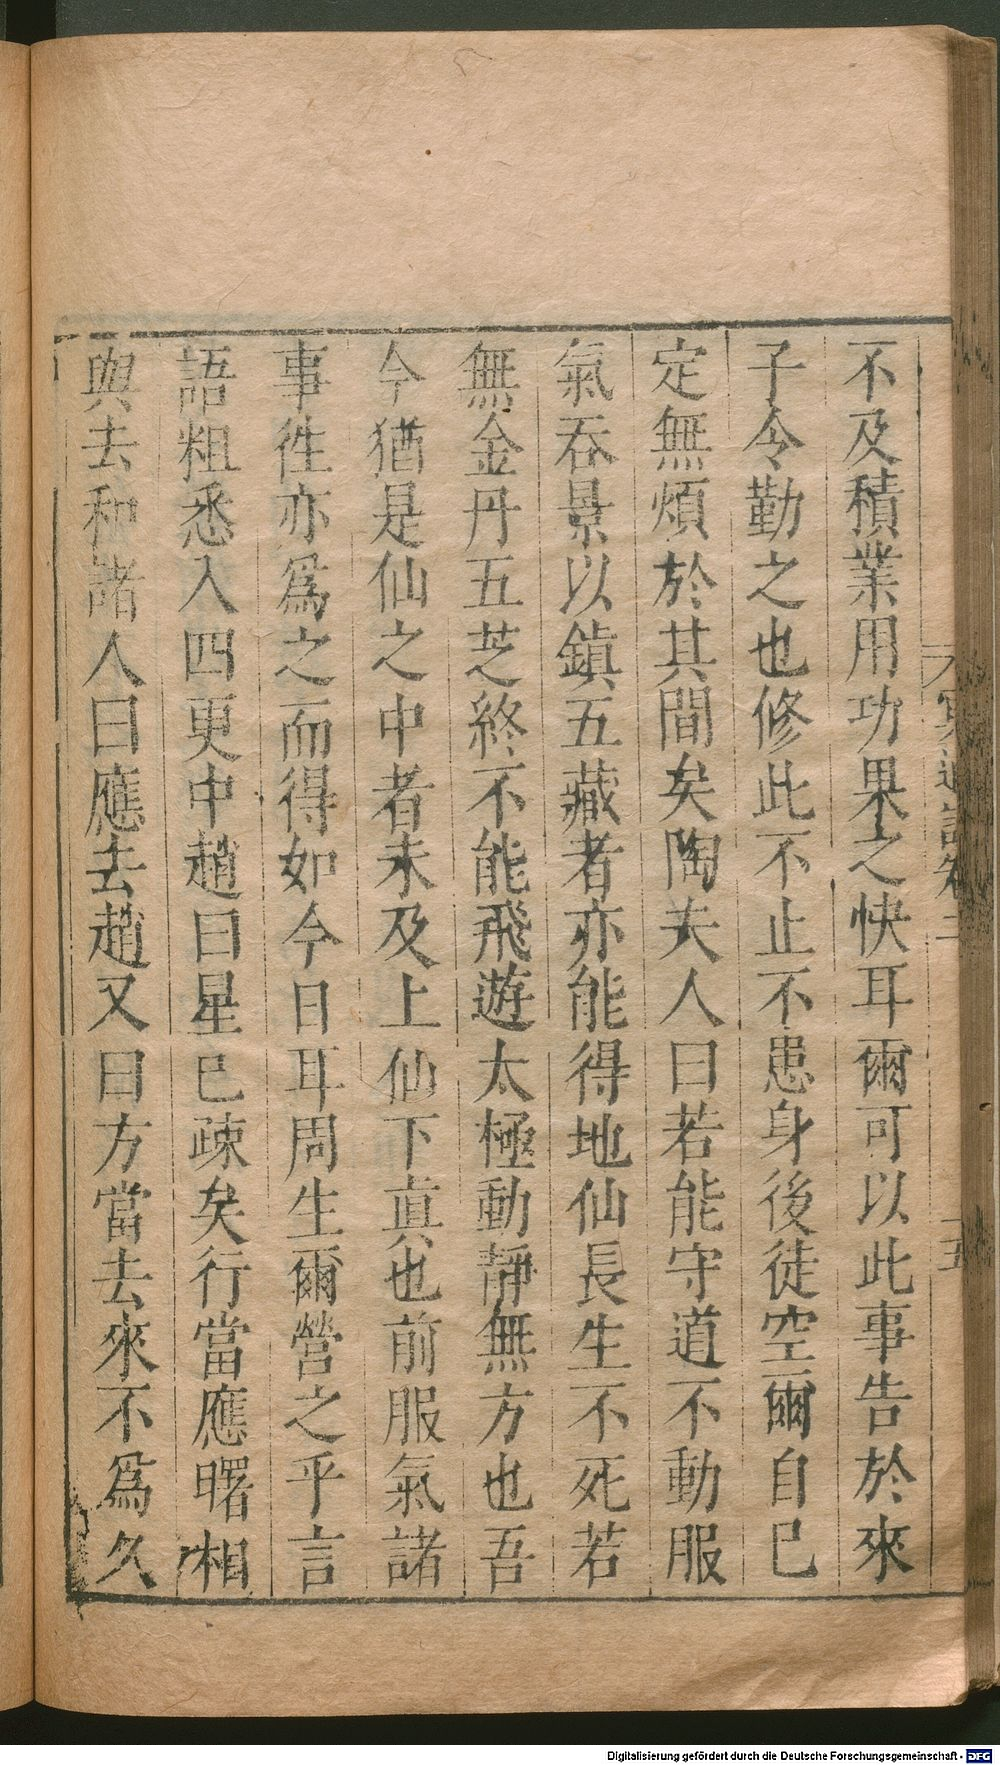 不及積業用功果之快耳爾可以此事告於來
子令勤之也修此不止不患身後徒空爾自已
定無煩於其間矣陶夫人曰若能守道不動服
氣吞景以鎮五藏者亦能得地仙長生不死若
無金丹五芝終不能飛遊太極動靜無方也吾
今猶是仙之中者未及上仙下真也前服氣諸
事徃亦爲之而得如今日耳周生爾營之乎言
語粗悉入四更中趙曰星已疎矣行當應曙相
與去和諸人曰應去趙又曰方當去來不爲久
Digitalisierung gefördert durch die Deutsche Forschungsgemeinschaft - DFG